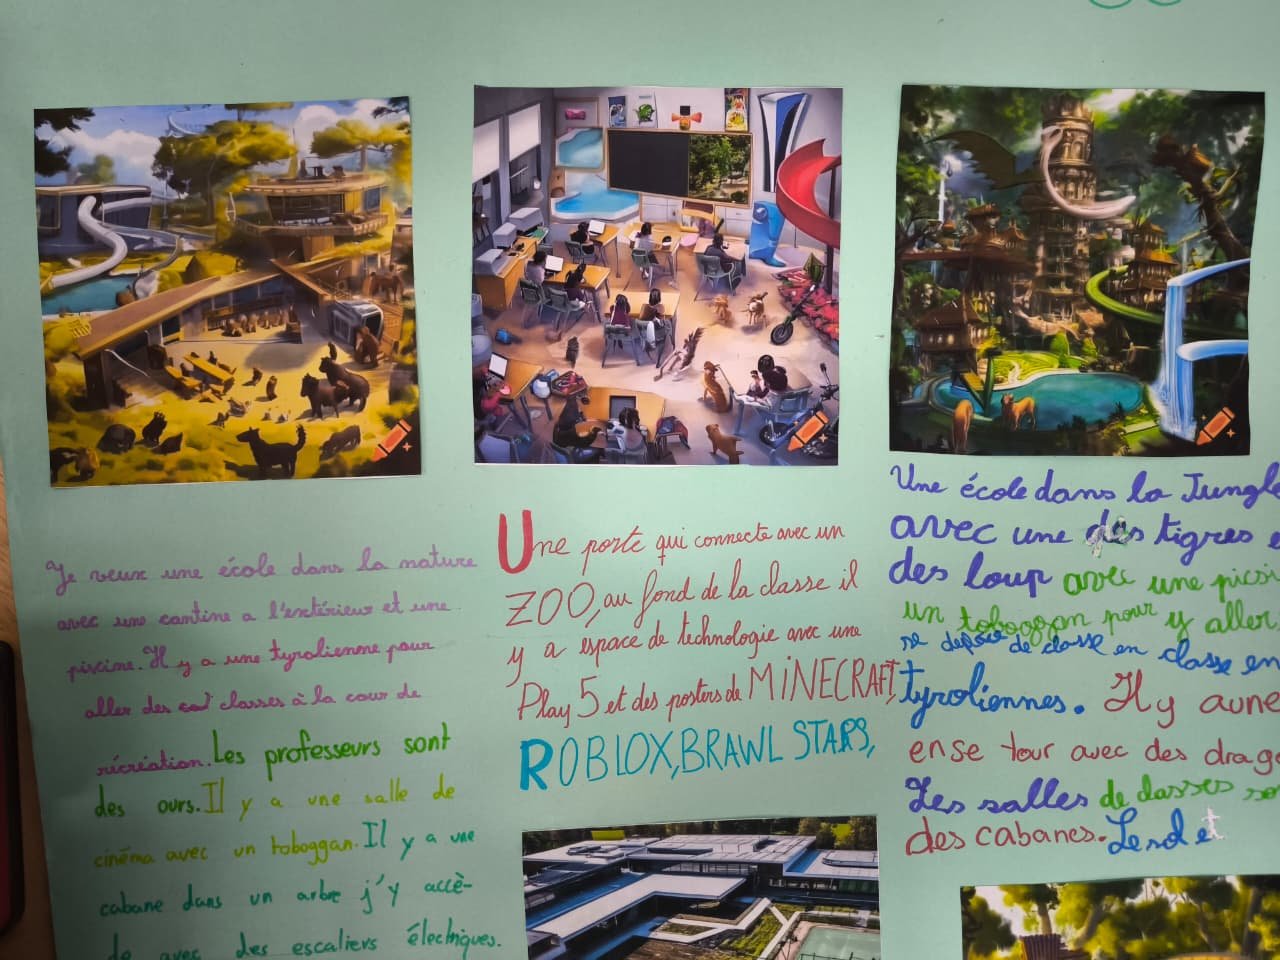 Je veux une école dans la nature
avec une cantine a l'extérieur et une
piscine. Il y a une tyrolienne pour
aller des classes à la cour de
récréation. Les professeurs sont
des ours. Il y a une salle de
cinéma avec un toboggan. Il y a une
cabane dans un arbre j'y accè-
de avec des escaliers électriques.
Une porte qui connecte avec un
ZOO, au fond de la classe il
y a espace de technologie avec une
Play 5 et des posters de MINECRAFT,
ROBLOX, BRAWL STARS,
Une école dans la Jungle
avec une des tigres e
des loup avec une picsi
un toboggan pour y aller,
se de classe en classe en
tyroliennes. Il y a une
ense tour avec des drag
Les salles de classes so
des cabanes. Le sol et